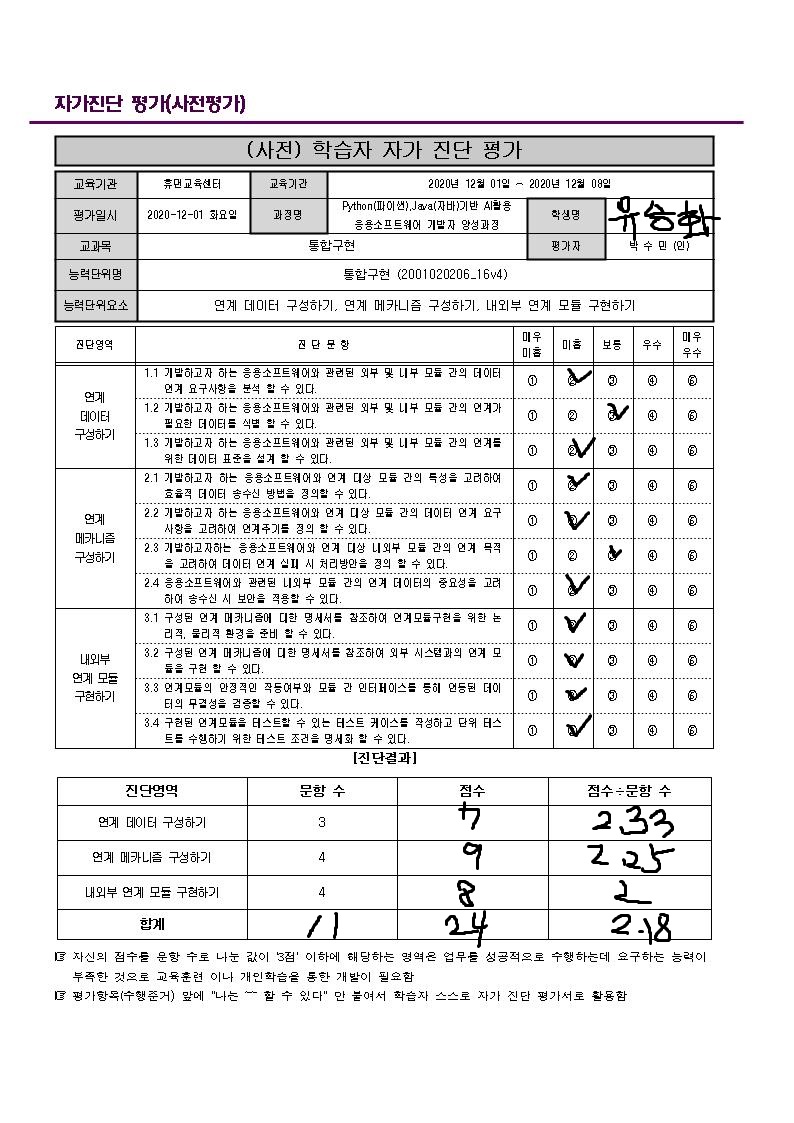 자가진단 평가(사전평가)
(사전) 학습자 자가 진단 평가
교육기관 휴먼교육센터 교육기관 2020년 12월 01일 ~ 2020년 12월 08일
평가일시 2020-12-01 화요일 과정명 Python(파이썬),Java(자바)기반 AI활용
응용소프트웨어 개발자 양성과정 학생명 유승화
교과목 통합구현 평가자 박 수 민 (인)
능력단위명 통합구현 (2001020206_16v4)
능력단위요소 연계 데이터 구성하기, 연계 메카니즘 구성하기, 내외부 연계 모듈 구현하기
진단영역 진 단 문 항 매우 미흡 미흡 보통 우수 매우 우수
연계 데이터 구성하기
1.1 개발하고자 하는 응용소프트웨어와 관련된 외부 및 내부 모듈 간의 데이터 ① ② ③ ④ ⑤
연계 요구사항을 분석 할 수 있다.
1.2 개발하고자 하는 응용소프트웨어와 관련된 외부 및 내부 모듈 간의 연계가 ① ② ③ ④ ⑤
필요한 데이터를 식별 할 수 있다.
1.3 개발하고자 하는 응용소프트웨어와 관련된 외부 및 내부 모듈 간의 연계를 ① ② ③ ④ ⑤
위한 데이터 표준을 설계 할 수 있다.
연계 메카니즘 구성하기
2.1 개발하고자 하는 응용소프트웨어와 연계 대상 모듈 간의 특성을 고려하여 ① ② ③ ④ ⑤
효율적 데이터 송수신 방법을 정의할 수 있다.
2.2 개발하고자 하는 응용소프트웨어와 연계 대상 모듈 간의 데이터 연계 요구 ① ② ③ ④ ⑤
사항을 고려하여 연계주기를 정의 할 수 있다.
2.3 개발하고자하는 응용소프트웨어와 연계 대상 내외부 모듈 간의 연계 목적 ① ② ③ ④ ⑤
을 고려하여 데이터 연계 실패 시 처리방안을 정의 할 수 있다.
2.4 응용소프트웨어와 관련된 내외부 모듈 간의 연계 데이터의 중요성을 고려 ① ② ③ ④ ⑤
하여 송수신 시 보안을 적용할 수 있다.
내외부 연계 모듈 구현하기
3.1 구성된 연계 메카니즘에 대한 명세서를 참조하여 연계모듈구현을 위한 논 ① ② ③ ④ ⑤
리적, 물리적 환경을 준비 할 수 있다.
3.2 구성된 연계 메카니즘에 대한 명세서를 참조하여 외부 시스템과의 연계 모 ① ② ③ ④ ⑤
듈을 구현 할 수 있다.
3.3 연계모듈의 안정적인 작동여부와 모듈 간 인터페이스를 통해 연동된 데이 ① ② ③ ④ ⑤
터의 무결성을 검증할 수 있다.
3.4 구현된 연계모듈을 테스트할 수 있는 테스트 케이스를 작성하고 단위 테스 ① ② ③ ④ ⑤
트를 수행하기 위한 테스트 조건을 명세화 할 수 있다.
[진단결과]
진단영역 문항 수 점수 점수÷문항 수
연계 데이터 구성하기 3 7 2.33
연계 메카니즘 구성하기 4 9 2.25
내외부 연계 모듈 구현하기 4 8 2
합계 11 24 2.18
☞ 자신의 점수를 문항 수로 나눈 값이 '3점' 이하에 해당하는 영역은 업무를 성공적으로 수행하는데 요구하는 능력이
부족한 것으로 교육훈련 이나 개인학습을 통한 개발이 필요함
☞ 평가항목(수행준거) 앞에 "나는 ~~ 할 수 있다" 만 붙여서 학습자 스스로 자가 진단 평가서로 활용함